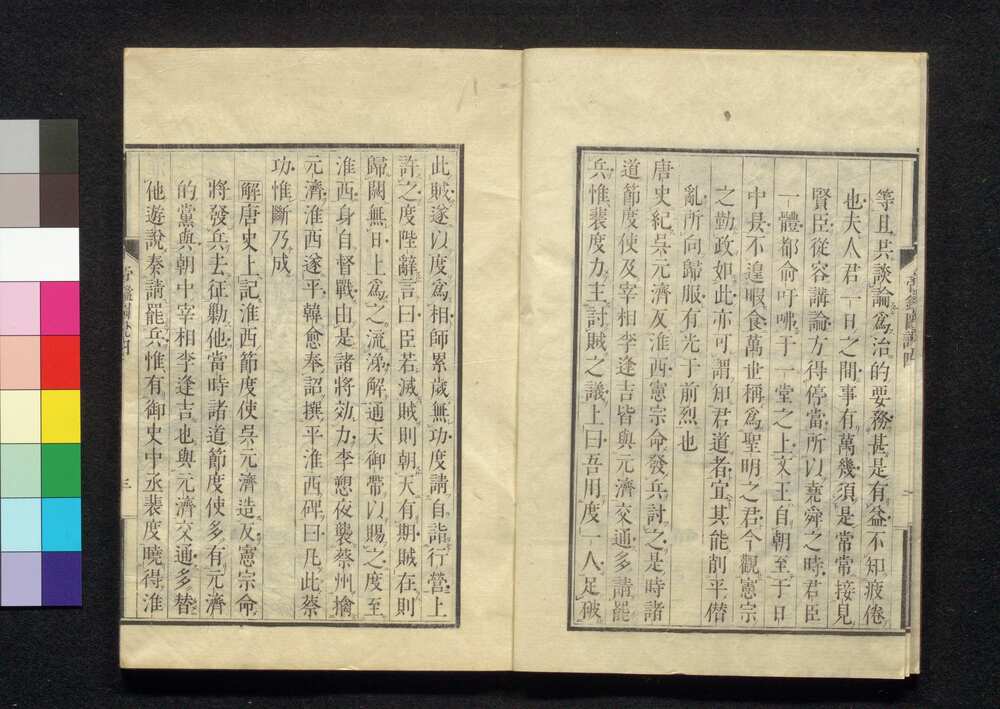 等且共談論爲治的要務甚是有益不知疲倦
也夫人君一日之間事有萬幾須是常常接見
賢臣從容講論方得停當所以堯舜之時君臣
一體都俞吁咈于一堂之上文王自朝至于日
中昃不遑暇食萬世稱爲聖明之君今觀憲宗
之勤政如此亦可謂知君道者宜其能削平僭
亂所向歸服有光于前烈也
唐史紀吳元濟反淮西憲宗命發兵討之是時諸
道節度使及宰相李逢吉皆與元濟交通多請罷
兵惟裴度力主討賊之議上曰吾用度一人足破
此賊遂以度爲相師累歲無功度請自詣行營上
許之度陛辭言曰臣若滅賊則朝天有期賊在則
歸闕無日上爲之流涕解通天御帶以賜之度至
淮西身自督戰由是諸將効力李愬夜襲蔡州擒
元濟淮西遂平韓愈奉詔撰平淮西碑曰凡此蔡
功惟斷乃成
解唐史上記淮西節度使吳元濟造反憲宗命
將發兵去征勦他當時諸道節度使多有元濟
的黨與朝中宰相李逢吉也與元濟交通多替
他遊說奏請罷兵惟有御史中丞裴度曉得淮
三